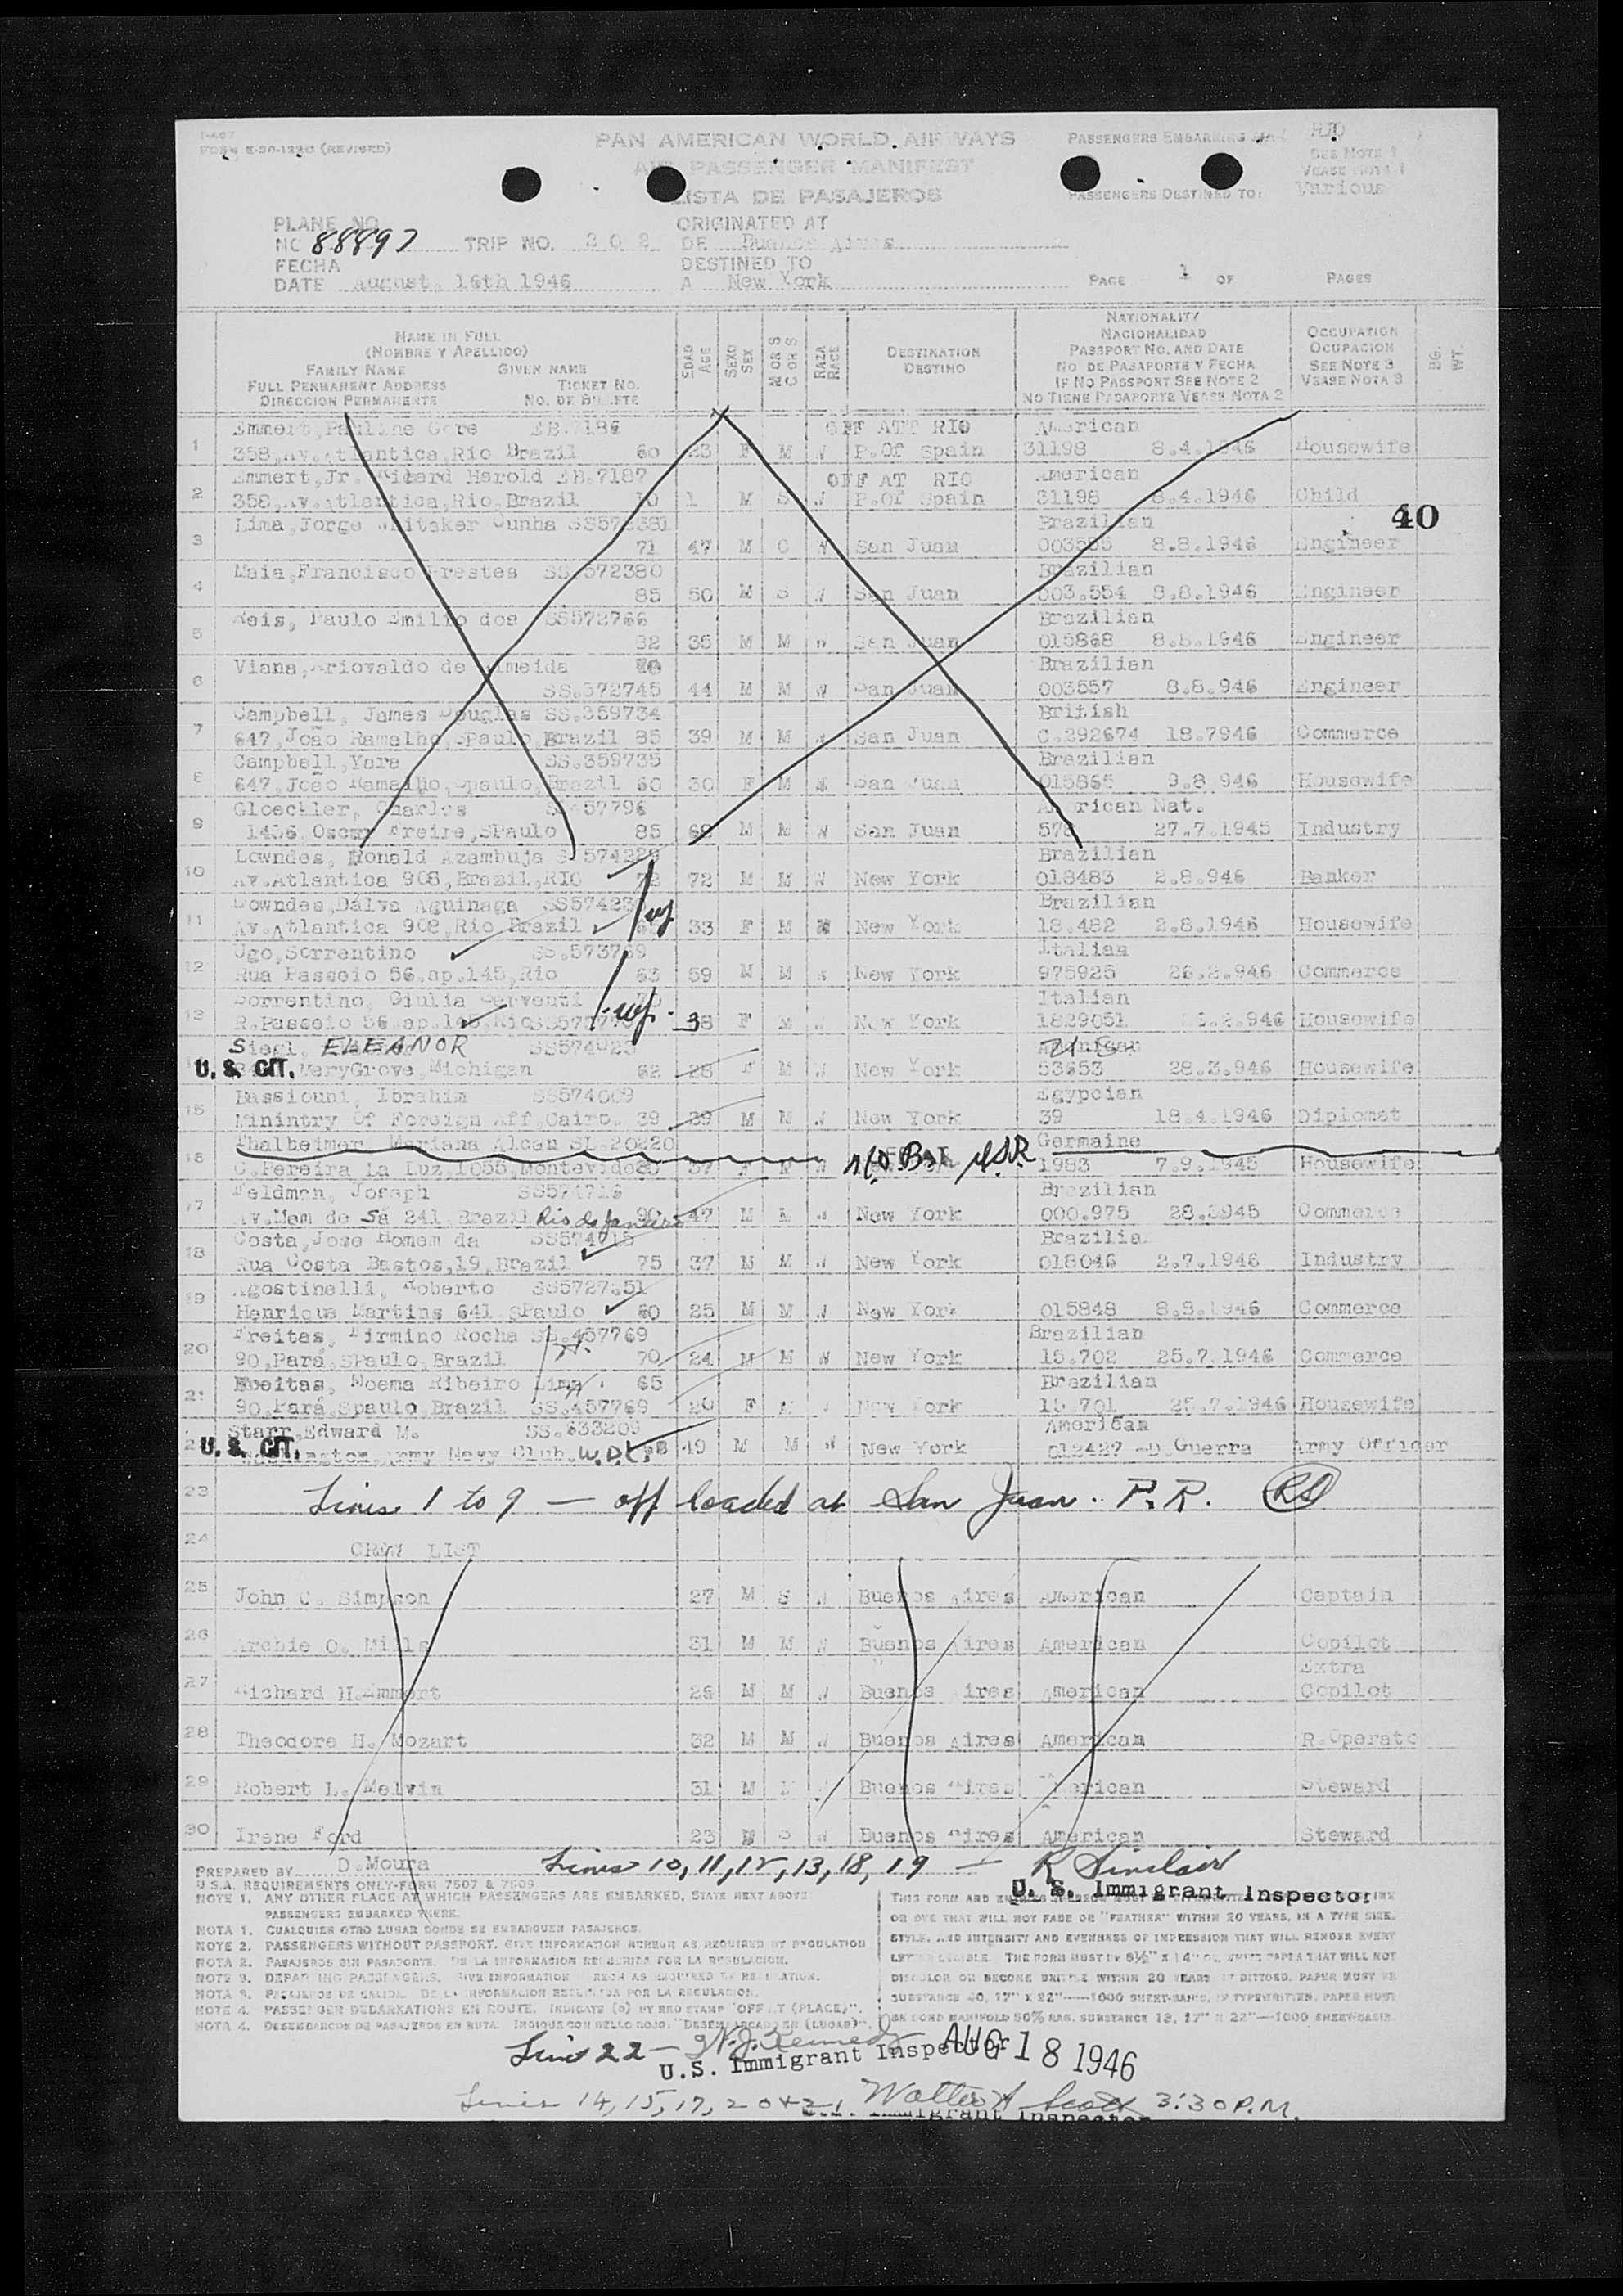 I-467
FORM E-30-122G (REVISED)
PAN AMERICAN WORLD AIRWAYS
AIR PASSENGER MANIFEST
LISTA DE PASAJEROS
PASSENGERS EMBARKING AT: RIO
SEE NOTE 1
VEASE NOTA 1
PASSENGERS DESTINED TO: Various
PLANE NO.
NC 88897 TRIP NO. 202
ORIGINATED AT
DE Buenos Aires
FECHA
DATE August, 16th 1946
DESTINED TO
A New York
PAGE 1 OF PAGES
NAME IN FULL
(NOMBRE Y APELLIDO)
FAMILY NAME GIVEN NAME
FULL PERMANENT ADDRESS TICKET NO.
DIRECCION PERMANENTE NO. DE BILLETE
EDAD AGE
SEXO SEX
M OR S C OR S
RAZA RACE
DESTINATION
DESTINO
NATIONALITY
NACIONALIDAD
PASSPORT NO. AND DATE
NO DE PASAPORTE Y FECHA
IF NO PASSPORT SEE NOTE 2
NO TIENE PASAPORTE VEASE NOTA 2
OCCUPATION
OCUPACION
SEE NOTE 3
VEASE NOTA 3
BG. WT.
Emmert, Pauline Gore EB.7186 OFF ATT RIO American
1 358, Av. Atlantica, Rio Brazil 60 23 F M W P.Of Spain 31198 8.4.1946 Housewife
Emmert, Jr. Richard Harold EB.7187 OFF AT RIO American
2 358, Av. Atlantica, Rio, Brazil 10 1 M S W P.Of Spain 31198 8.4.1946 Child
40
Lima, Jorge Whitaker Cunha SS572381 Brazilian
3 71 47 M C W San Juan 003555 8.8.1946 Engineer
Maia, Francisco Prestes SS.572380 Brazilian
4 85 50 M S W San Juan 003.554 8.8.1946 Engineer
Reis, Paulo Emilio dos SS572766 Brazilian
5 82 35 M M W San Juan 015868 8.8.1946 Engineer
Viana, Ariovaldo de Almeida 70 Brazilian
6 SS.572745 44 M M W San Juan 003557 8.8.946 Engineer
Campbell, James Douglas SS.359734 British
7 647, João Ramalho, SPaulo, Brazil 85 39 M M W San Juan C.292674 18.7946 Commerce
Campbell, Yara SS.359735 Brazilian
8 647, João Ramalho, Spaulo, Brazil 60 30 F M W San Juan 015865 9.8 946 Housewife
Gloeckler, Charles 57796 American Nat.
9 1436, Oscar Freire, SPaulo 85 M M W San Juan 27.7.1945 Industry
Lowndes, Donald Azambuja Brazilian
10 Av. Atlantica 908, Brazil, RIO 72 72 M M W New York 018483 2.8.946 Banker
Lowndes, Dalva Aguinaga Brazilian
11 Av. Atlantica 908, Rio Brazil 33 F M W New York 18.482 2.8.1946 Housewife
Ugo, Sorrentino SS.573769 Italian
12 Rua Passeio 56, ap.145, Rio 63 59 M M W New York 975925 26.2.946 Commerce
Sorrentino, Giulia Cerventi Italian
13 R. Passeio 56 ap.145, Rio 38 F M W New York 1829051 946 Housewife
Siegl, ELEANOR SS574023 U.S.
U. S. CIT. VeryGrove, Michigan 62 28 F M W New York 53653 28.3.946 Housewife
Bassiouni, Ibrahim SS574009 Egypcian
15 Minintry Of Foreign Aff, Cairo. 39 39 M M W New York 39 18.4.1946 Diplomat
Thalheimer, Mariana Alceu SL.20220 Germaine
16 C. Pereira La Luz, 1055, Montevideo 37 F M W N.O.B. 1983 7.9.1945 Housewife
Feldman, Joseph SS574716 Brazilian
17 Av. Mem de Sá 241 Brazil Rio de Janeiro 90 47 M M W New York 000.975 28.3945 Commerce
Costa, Jose Homem da SS574715 Brazilia
18 Rua Costa Bastos, 19, Brazil 75 37 M M W New York 018046 2.7.1946 Industry
Agostinelli, Roberto
19 Henrique Martins 641 SPaulo 60 25 M M W New York 015848 8.8.1946 Commerce
Freitas, Firmino Rocha SS.457769 Brazilian
20 90, Pará, SPaulo, Brazil 70 24 M M W New York 15.702 25.7.1946 Commerce
Freitas, Noema Ribeiro Lima 65 Brazilian
21 90, Pará, Spaulo, Brazil SS.457769 20 F M W New York 15.701 25.7.1946 Housewife
Starr, Edward M. SS.633209 American
U. S. CIT. Washington, Army Navy Club. W.D.C. 49 M M W New York 012427 -D Guerra Army Officer
23 Lines 1 to 9 — off loaded at San Juan. P.R. RS
24 CREW LIST
25 John C. Simpson 27 M S W Buenos Aires American Captain
26 Archie O. Mills 31 M M W Buenos Aires American Copilot
27 Richard H. Emmert 26 M M W Buenos Aires American Extra Copilot
28 Theodore H. Mozart 32 M M W Buenos Aires American R. Operato
29 Robert L. Melvin 31 M M W Buenos Aires American Steward
30 Irene Ford 23 S W Buenos Aires American Steward
PREPARED BY D. Moura
Lines 10, 11, 12, 13, 18, 19 — R Sinclair
U. S. Immigrant Inspector
U.S.A. REQUIREMENTS ONLY-FORM 7507 & 7509
NOTE 1. ANY OTHER PLACE AT WHICH PASSENGERS ARE EMBARKED, STATE NEXT ABOVE
PASSENGERS EMBARKED THERE.
NOTA 1. CUALQUIER OTRO LUGAR DONDE SE EMBARQUEN PASAJEROS.
NOTE 2. PASSENGERS WITHOUT PASSPORT. GIVE INFORMATION HEREON AS REQUIRED BY REGULATION
NOTA 2. PASAJEROS SIN PASAPORTE. DE LA INFORMACION REQUERIDA POR LA REGULACION.
NOTE 3. DEPARTING PASSENGERS. GIVE INFORMATION HEREON AS REQUIRED BY REGULATION.
NOTA 3. PASAJEROS DE SALIDA. DE LA INFORMACION REQUERIDA POR LA REGULACION.
NOTE 4. PASSENGER DEBARKATIONS EN ROUTE. INDICATE (0) BY RED STAMP "OFF AT (PLACE)".
NOTA 4. DESEMBARCOS DE PASAJEROS EN RUTA. INDIQUE CON SELLO ROJO: "DESEMBARCADO EN (LUGAR)".
OR DYE THAT WILL NOT FADE OR "FEATHER" WITHIN 20 YEARS, IN A TYPE SIZE,
STYLE, AND INTENSITY AND EVENNESS OF IMPRESSION THAT WILL RENDER EVERY
LETTER LEGIBLE. THE FORM MUST BE 8½" X 14" OF WHITE PAPER THAT WILL NOT
DISCOLOR OR BECOME BRITTLE WITHIN 20 YEARS. IF DITTOED, PAPER MUST BE
SUBSTANCE 40, 17" X 22"—1000 SHEET-BASIS. IF TYPEWRITTEN, PAPER MUST
BE BOND MANIFOLD 50% RAG. SUBSTANCE 18, 17" X 22"—1000 SHEET-BASIS.
Line 22 — W.J. Kennedy
U.S. Immigrant Inspector
AUG 18 1946
Lines 14, 15, 17, 20 & 21 Walter A Scott 3:30 P.M.
U.S. Immigrant Inspector